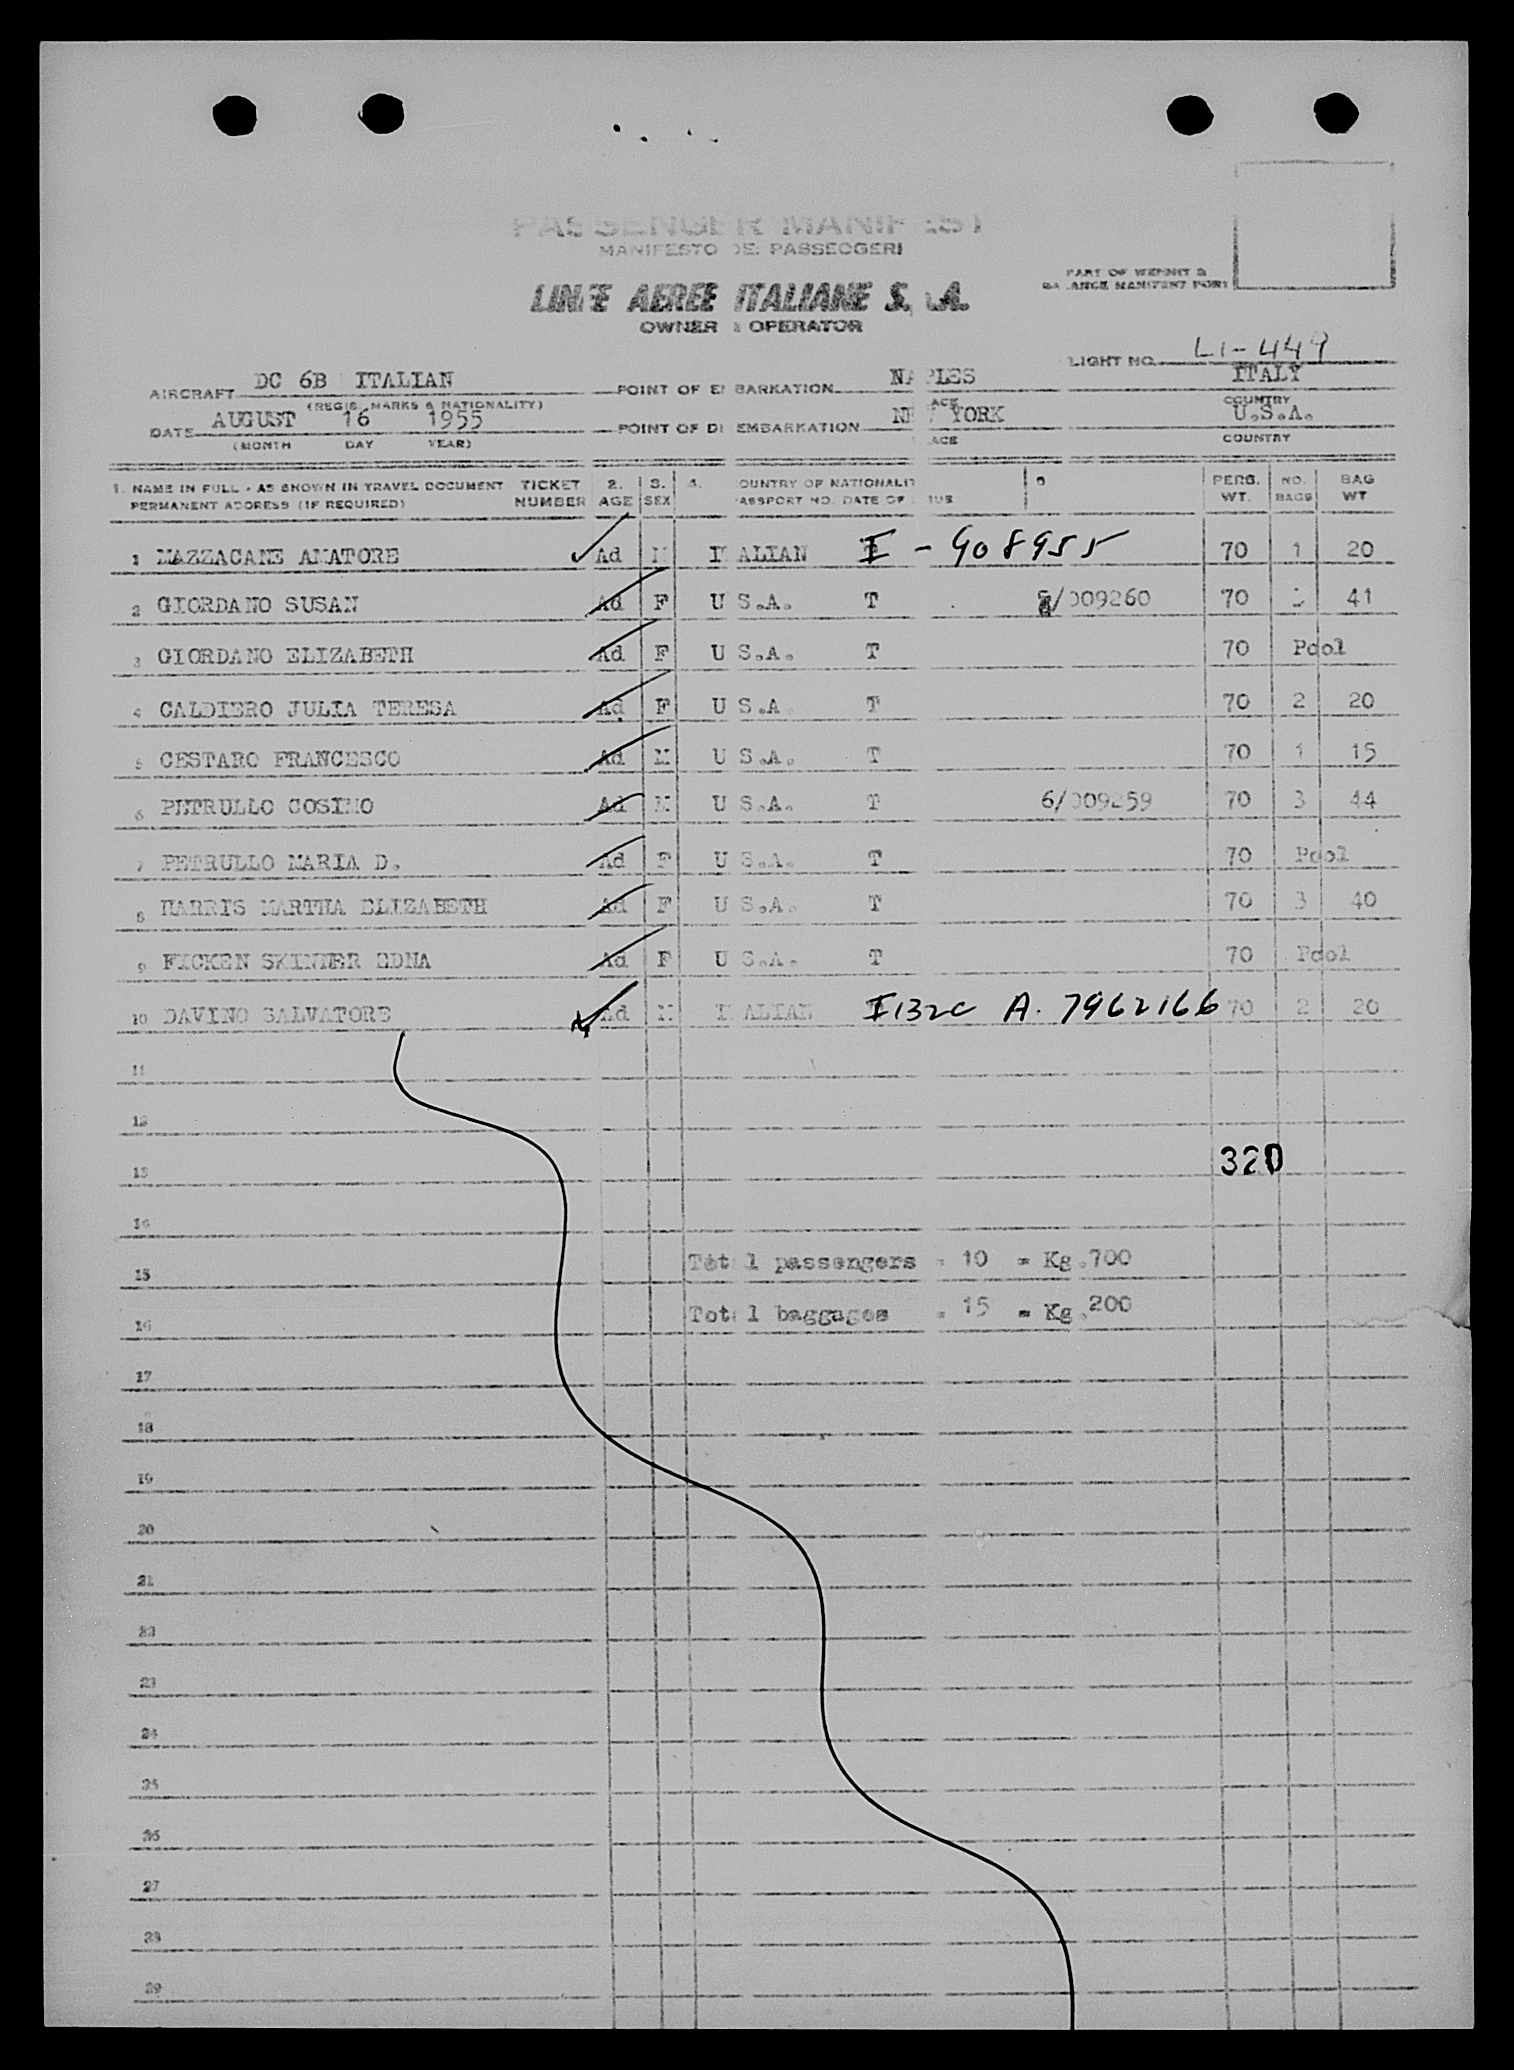 PASSENGER MANIFEST
MANIFESTO DEI PASSEGGERI
LINEE AEREE ITALIANE S. A.
OWNER & OPERATOR
PART OF WEIGHT &
BALANCE MANIFEST FORM
FLIGHT NO. LI-449
AIRCRAFT DC 6B ITALIAN POINT OF EMBARKATION NAPLES ITALY
(REGIS. MARKS & NATIONALITY) PLACE COUNTRY
DATE AUGUST 16 1955 POINT OF DISEMBARKATION NEW YORK U.S.A.
(MONTH DAY YEAR) PLACE COUNTRY
1. NAME IN FULL - AS SHOWN IN TRAVEL DOCUMENT TICKET 2. 3. 4. COUNTRY OF NATIONALITY PERS. NO. BAG
PERMANENT ADDRESS (IF REQUIRED) NUMBER AGE SEX PASSPORT NO. DATE OF WT. BAGS WT
1 MAZZACANE AMATORE Ad M ITALIAN I - 908955 70 1 20
2 GIORDANO SUSAN Ad F U.S.A. T 6/009260 70 41
3 GIORDANO ELIZABETH Ad F U.S.A. T 70 Pool
4 CALDIERO JULIA TERESA Ad F U.S.A. T 70 2 20
5 CESTARO FRANCESCO Ad M U.S.A. T 70 1 15
6 PETRULLO COSIMO Ad M U.S.A. T 6/009259 70 3 44
7 PETRULLO MARIA D. Ad F U.S.A. T 70 Pool
8 HARRIS MARTHA ELIZABETH Ad F U.S.A. T 70 3 40
9 FICKEN SKINNER EDNA Ad F U.S.A. T 70 Pool
10 DAVINO SALVATORE Ad M ITALIAN I132C A. 7962166 70 2 20
11
12
13 320
14
15 Total passengers = 10 = Kg.700
16 Total baggages = 15 = Kg.200
17
18
19
20
21
22
23
24
25
26
27
28
29